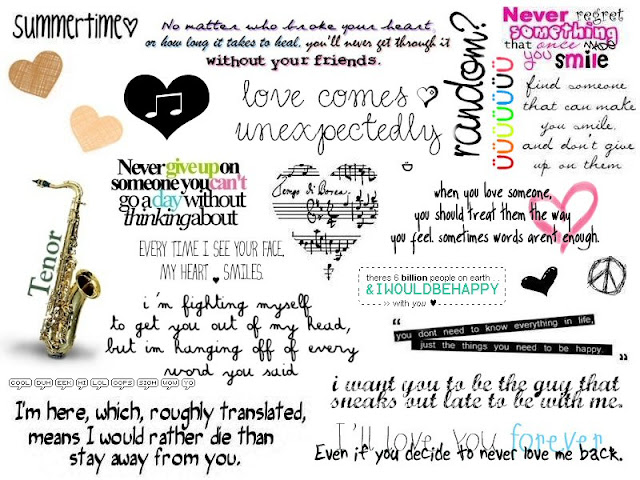 summertime
No matter who broke your heart,
or how long it takes to heal, you'll never get through it
without your friends.
random?
üüüüüüü
Never regret
something
that once made
you smile
love comes
unexpectedly
find someone
that can make
you smile,
and don't give
up on them
Never give up on
someone you can't
go a day without
thinking about
when you love someone,
you should treat them the way
you feel. sometimes words arent enough.
Tenor
EVERY TIME I SEE YOUR FACE,
MY HEART SMILES.
theres 6 billion people on earth . .
& I WOULDBEHAPPY
>> with you ♥
i'm fighting myself
to get you out of my head,
but im hanging off of every
word you said
“
you dont need to know everything in life,
just the things you need to be happy.
”
COOL DUH EEK HI LOL OOPS SIGH YOU YO
i want you to be the guy that
sneaks out late to be with me.
I'm here, which, roughly translated,
means I would rather die than
stay away from you.
I'll love you forever
Even if you decide to never love me back.